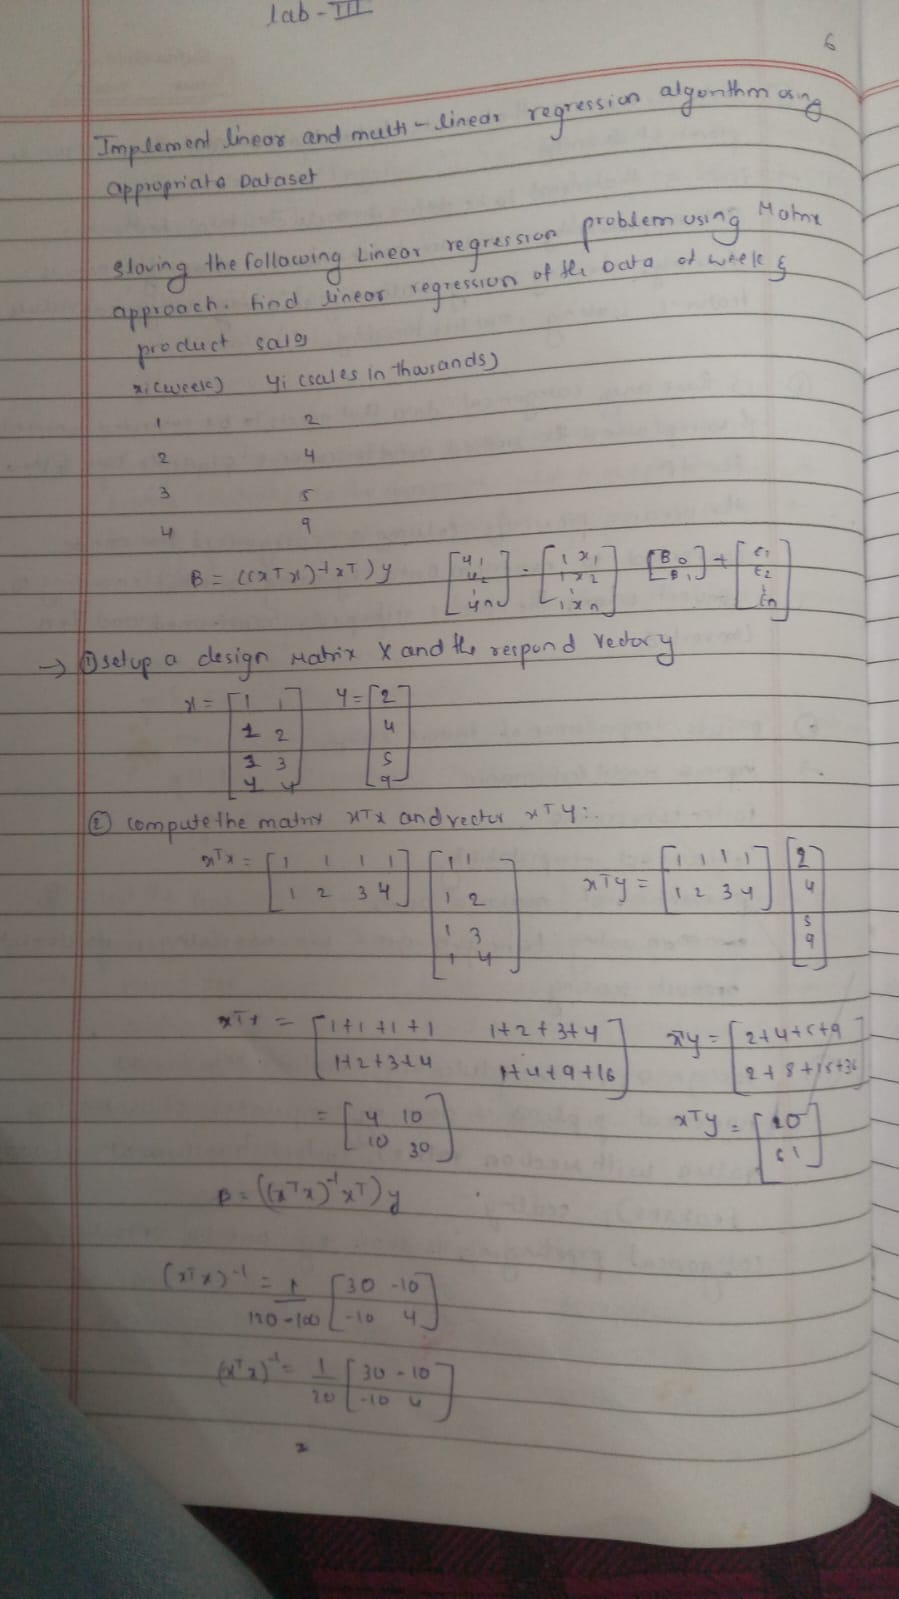 lab-III
6
Implement linear and multi-linear regression algorithm using
appropriate Dataset
sloving the following Linear regression problem using Matrix
approach. find linear regression of the Data of week &
product sales
xi(week) yi (sales in thousands)
1 2
2 4
3 5
4 9
B = ((xTx)-1xT)y [y1 y2 : yn] = [1 x1 1 x2 : 1 xn] [B0 B1] + [ε1 ε2 : εn]
→ ① setup a design Matrix X and the respond Vector y
x = [1 1 Y = [2
1 2 4
1 3 5
4] 9]
② compute the matrix xTx and vector xTy:.
xTx = [1 1 1 1 [1 1 xTy = [1 1 1 1 [2
1 2 3 4] 1 2 1 2 3 4] 4
1 3 5
1 4] 9]
xTx = [1+1+1+1 1+2+3+4 xTy = [2+4+5+9
1+2+3+4 1+4+9+16] 2+8+15+36]
= [4 10 xTy = [20
10 30] 61]
B = ((xTx)-1xT)y
(xTx)-1 = 1 [30 -10
120-100 -10 4]
(xTx)-1 = 1 [30 -10
20 -10 4]